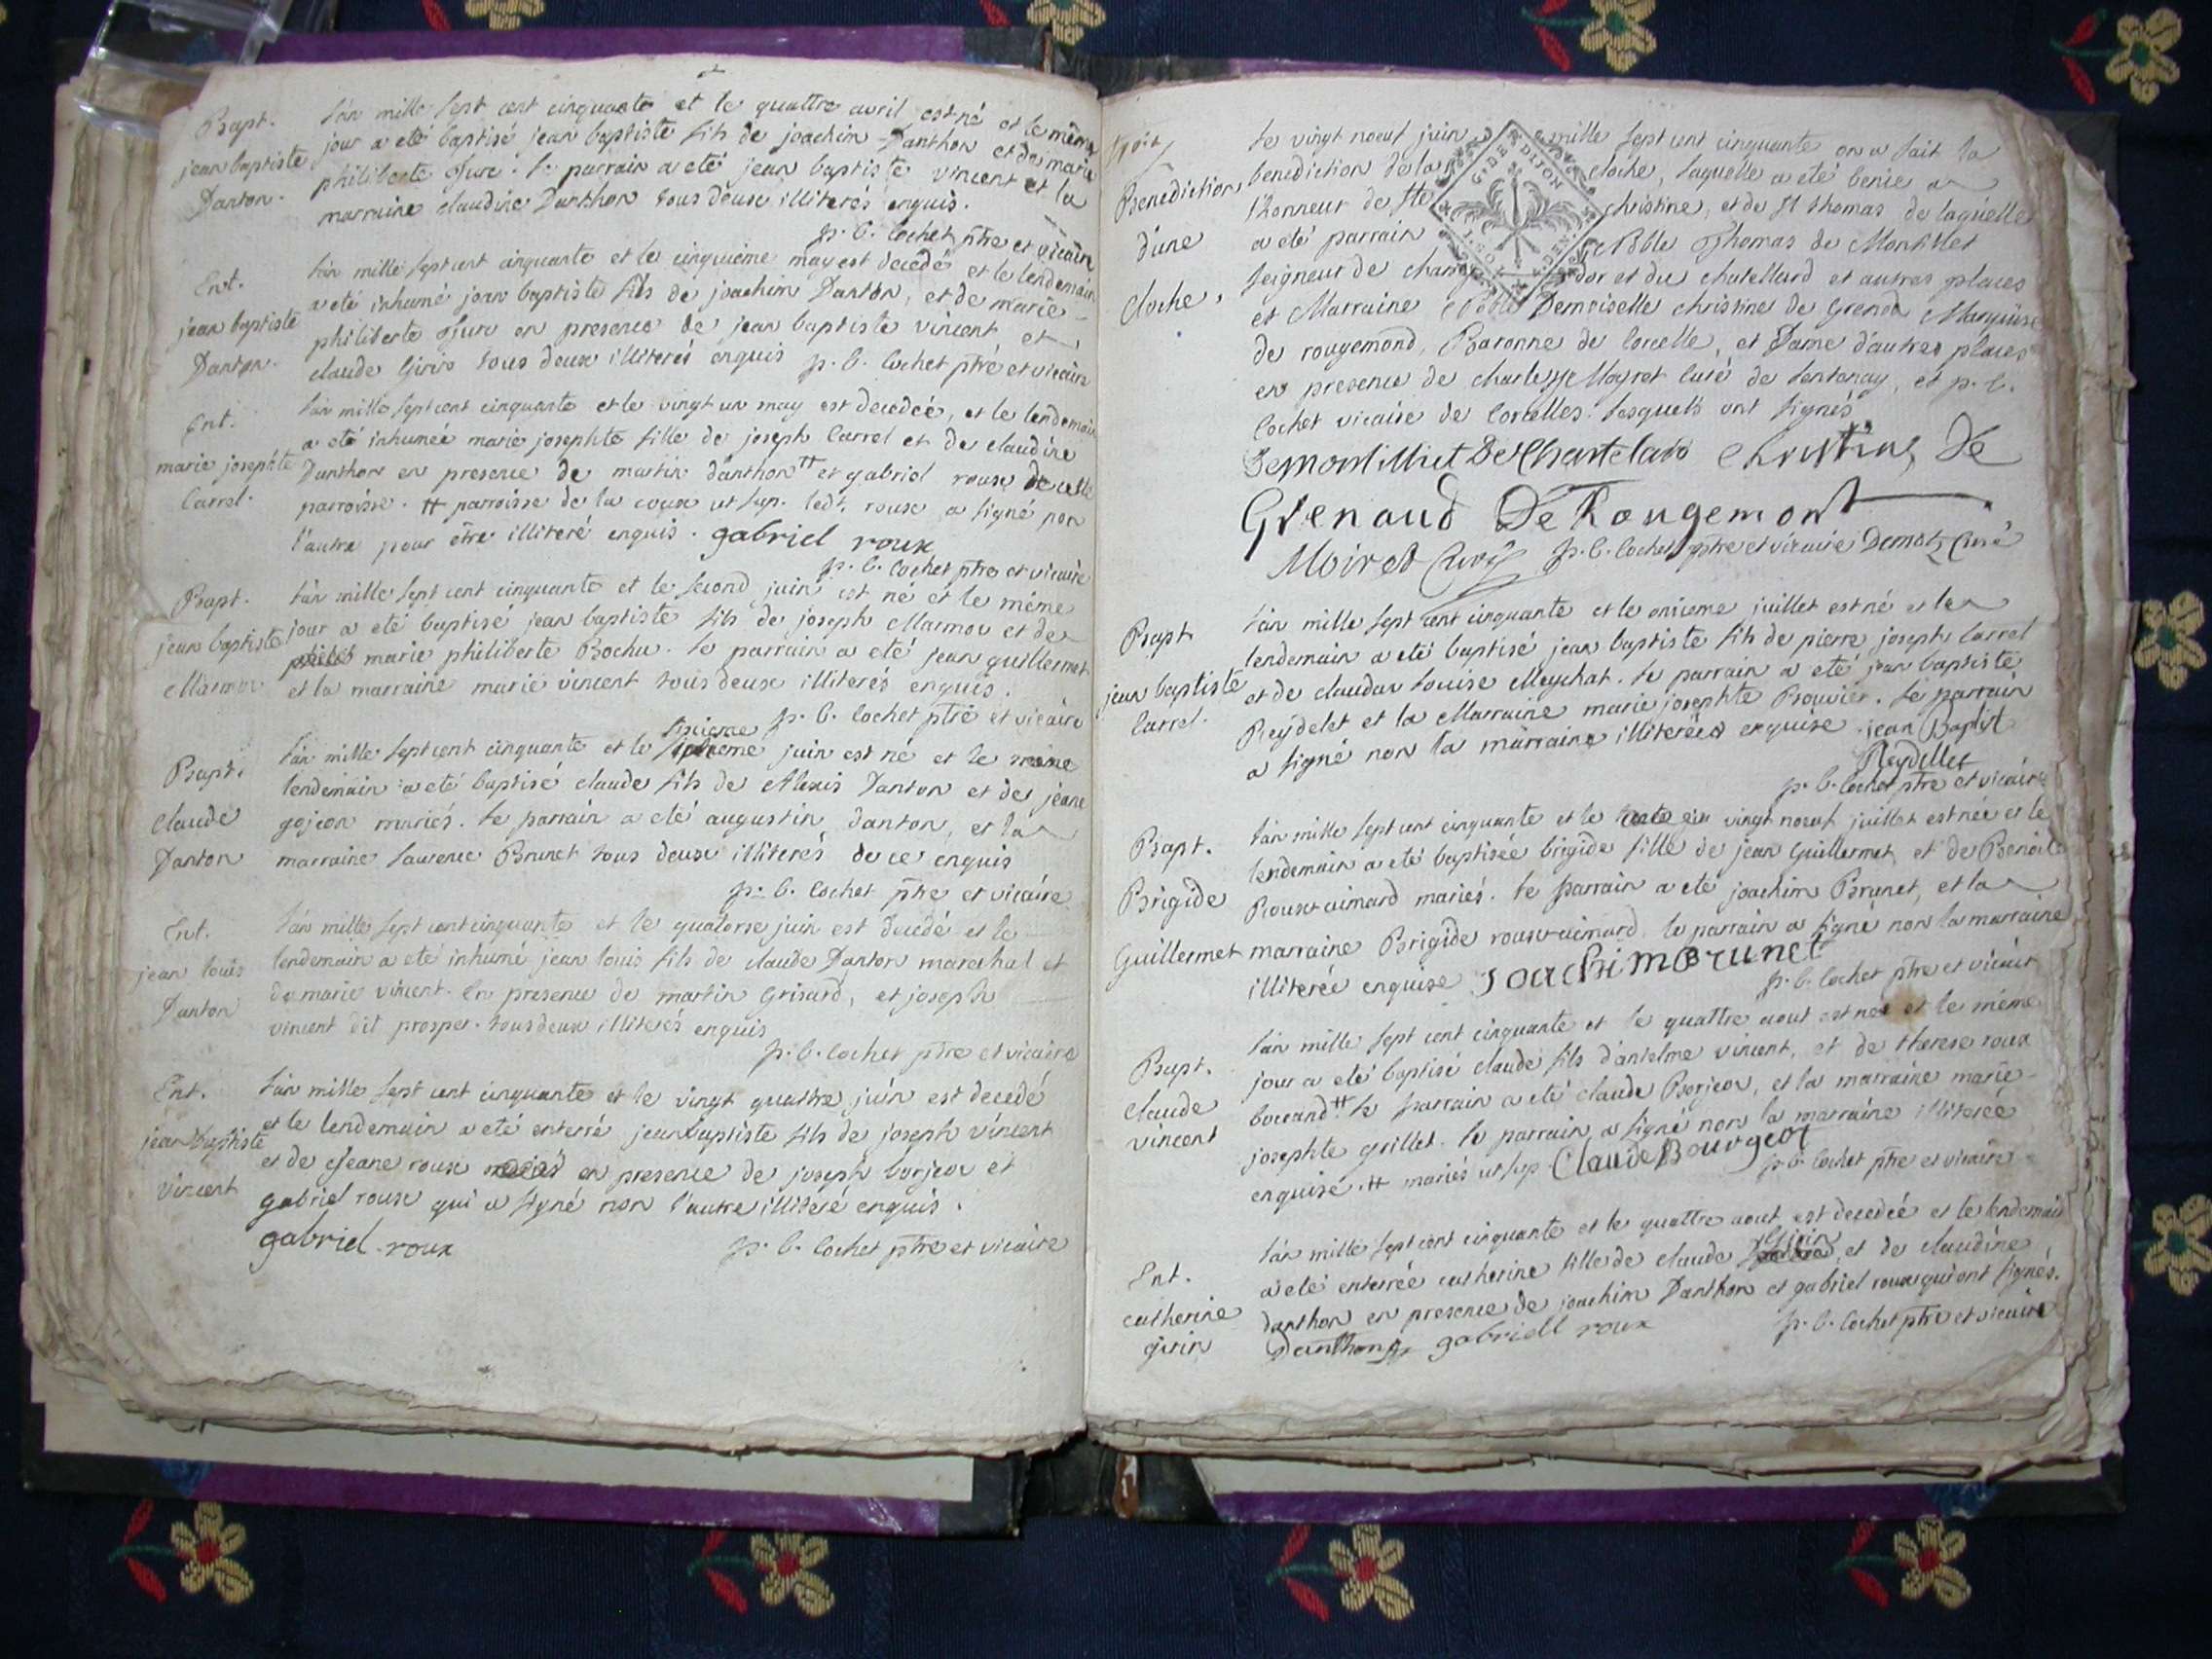 Bapt.
jean baptiste
Danton.
l'an mille sept cent cinquante et le quattre avril est né et le même
jour a eté baptisé jean baptiste fils de joachim Danthon et de marie
philiberte Jure. le parrain a eté jean baptiste vincent et la
marraine claudine Danthon tous deux illiterés enquis.
p. C. Cochet ptre et vicaire
Ent.
jean baptiste
Danton.
l'an mille sept cent cinquante et le cinquieme may est decedé et le lendemain
a eté inhumé jean baptiste fils de joachim Danton, et de marie
philiberte Jure en presence de jean baptiste vincent et
claude Girin tous deux illiterés enquis p. C. Cochet ptre et vicaire
Ent.
marie josephte
Carrel.
l'an mille sept cent cinquante et le vingt un may est decedée, et le lendemain
a eté inhumée marie josephte fille de joseph Carrel et de claudine
Danthon en presence de martin danthon # et gabriel roux de cette
parroisse. # parroisse de la coux ut sup. led. roux a signé non
l'autre pour être illiteré enquis. gabriel roux
p. C. Cochet ptre et vicaire
Bapt.
jean baptiste
Marmou
l'an mille sept cent cinquante et le second juin est né et le même
jour a eté baptisé jean baptiste fils de joseph Marmou et de
marie philiberte Bochu. le parrain a eté jean guillermet
et la marraine marie vincent tous deux illiterés enquis.
p. C. Cochet ptre et vicaire
Bapt.
claude
Danton
l'an mille sept cent cinquante et le juin est né et le
lendemain a eté baptisé claude fils de Alexis Danton et de jeane
gojeon mariés. le parrain a eté augustin danton, et la
marraine laurence Brunet tous deux illiterés de ce enquis
p. C. Cochet ptre et vicaire
Ent.
jean louis
Danton
l'an mille sept cent cinquante et le quatorse juin est decedé et le
lendemain a eté inhumé jean louis fils de claude Danton marechal et
de marie vincent. en presence de martin Grisard, et joseph
vincent dit prosper. tous deux illiterés enquis
p. C. Cochet ptre et vicaire
Ent.
jean baptiste
Vincent
l'an mille sept cent cinquante et le vingt quattre juin est decedé
et le lendemain a eté enterré jean baptiste fils de joseph vincent
et de Jeane roux en presence de joseph borjeon et
gabriel roux qui a signé non l'autre illiteré enquis.
gabriel roux p. C. Cochet ptre et vicaire
trois
Benediction
d'une
cloche,
le vingt noeuf juin mille sept cent cinquante on a fait la
benediction de la cloche, laquelle a eté benie a
l'honneur de Ste christine, et de St thomas de laquelle
a eté parrain Noble Thomas de Montillet
seigneur de et du chatellard et autres places
et Marraine Noble Demoiselle christine de Grenod Marquise
de rougemond, Baronne de Corcelle, et Dame d'autres places
en presence de charles Moyret curé de lentenay, et p. C.
Cochet vicaire de Corcelles. lesquels ont signés
G. DE DIJON
Demontilliet De Chantelard christine De
Grenaud De Rougemont
Moiret Curé p. C. Cochet ptre et vicaire Demotz Curé
Bapt
jean baptiste
Carrel.
l'an mille sept cent cinquante et le onsieme juillet est né et le
lendemain a eté baptisé jean baptiste fils de pierre joseph Carrel
et de claudau louise Meychat. le parrain a eté jean baptiste
Reydelet et la Marraine marie josephte Brouvier. le parrain
a signé non la marraine illiterée enquise. jean Baptist
Reydellet
p. C. Cochet ptre et vicaire
Bapt.
Brigide
Guillermet
l'an mille sept cent cinquante et le vingt noeuf juillet est née et le
lendemain a eté baptisée brigide fille de jean Guillermet, et de Benoite
Roux aimard mariés. le parrain a eté joachim Brunet, et la
marraine Brigide roux aimard. le parrain a signé non la marraine
illiterée enquise joachim Brunet
p. C. Cochet ptre et vicaire
Bapt.
claude
vincent
l'an mille sept cent cinquante et le quattre aout est né et le même
jour a eté baptisé claude fils d'antelme vincent, et de therese roux
bocand # le parrain a eté claude Borjeon, et la marraine marie
josephte grillet. le parrain a signé non la marraine illiterée
enquise. # mariés ut sup. Claude Bourgeot
p. C. Cochet ptre et vicaire
Ent.
catherine
girin
l'an mille sept cent cinquante et le quattre aout est decedée et le lendemain
a eté enterrée catherine fille de claude girin et de claudine
danthon en presence de joachim Danthon et gabriel roux qui ont signés.
Danthon gabriell roux p. C. Cochet ptre et vicaire